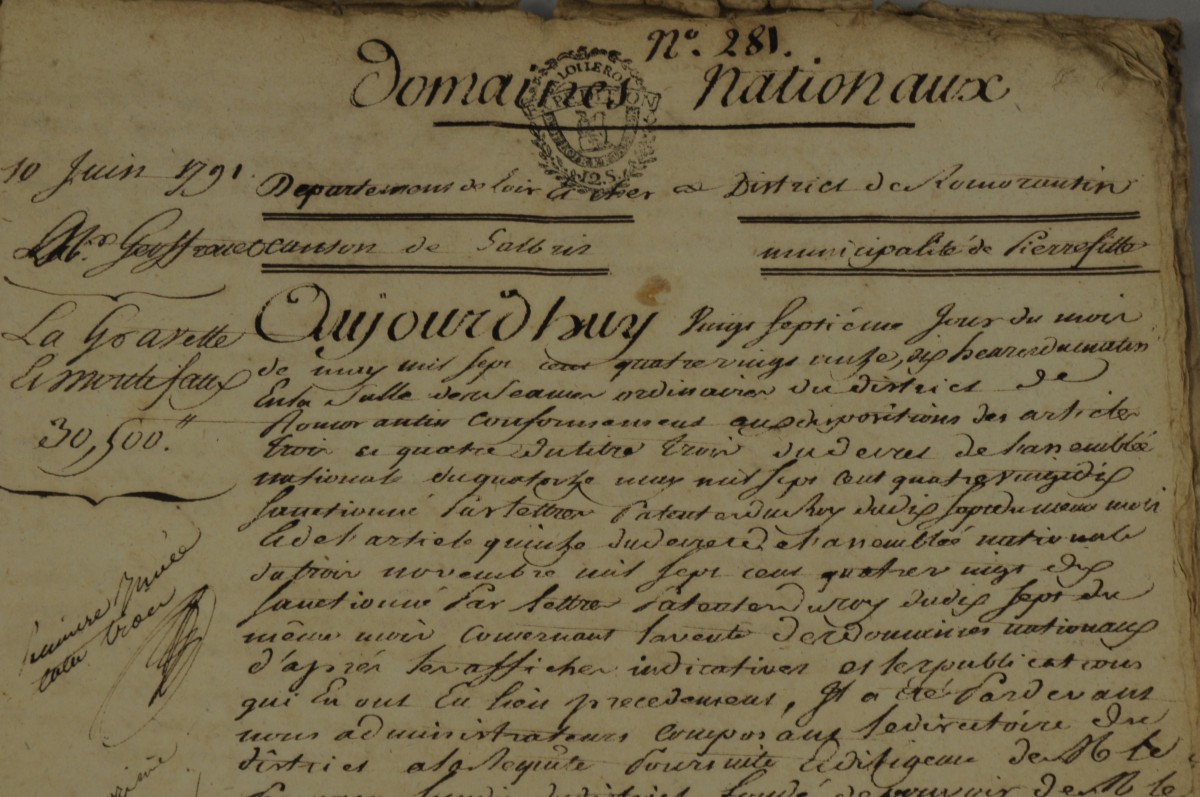 N.º 281.
Domaines Nationaux
LOI LE ROI
12 S.
10 Juin 1791.
Departement de Loir et Cher District de Romorantin
Geoffrenet canton de Salbris municipalité de Pierrefitte
La Gravette
Et montifaux
30,500.ᵗᵗ
Aujourd'huy Vingt Septiéme Jour du mois
de may mil sept cent quatre vingt onze, dix heures du matin
En la Salle des Seances ordinaires du district de
Romorantin conformement aux dispositions des articles
trois et quatre du titre trois du decret de l'assemblée
nationale du quatorze may mil sept cent quatre vingt dix
Sanctionné par lettres Patentes du Roy du dix sept du meme mois
Et de l'article quinze du decret de l'assemblée nationale
du trois novembre mil sept cent quatre vingt dix
Sanctionné Par lettres Patentes du roy du dix sept du
même mois concernant la vente des domaines nationaux
d'aprés les affiches indicatives et les publications
qui En ont Eu lieu precedement, Il a été Pardevant
nous administrateurs composant le directoire du
district a la Requête Poursuite Et diligence de M le
du district fondé de pouvoir de M le